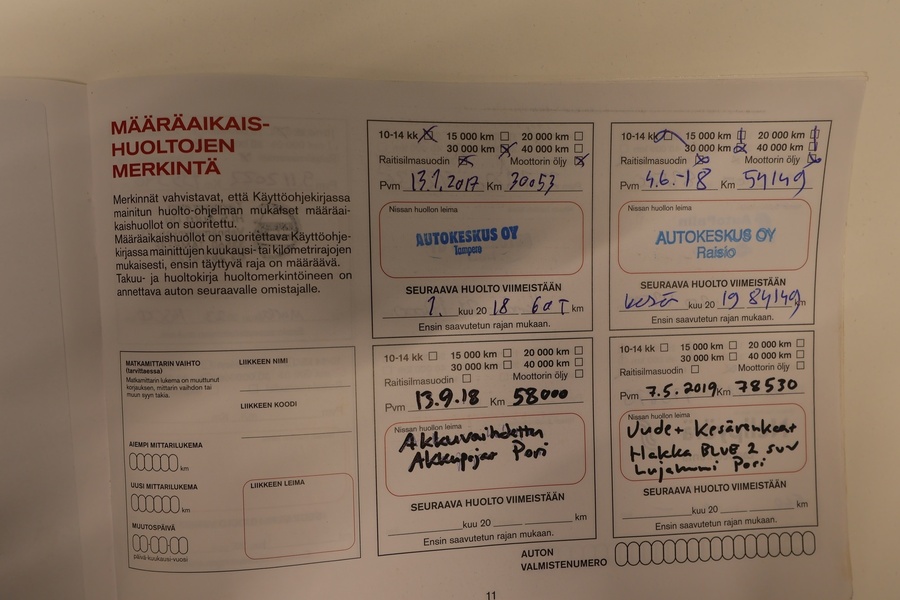 MÄÄRÄAIKAIS-
HUOLTOJEN
MERKINTÄ
Merkinnät vahvistavat, että Käyttöohjekirjassa
mainitun huolto-ohjelman mukaiset määräai-
kaishuollot on suoritettu.
Määräaikaishuollot on suoritettava Käyttöohje-
kirjassa mainittujen kuukausi- tai kilometrirajojen
mukaisesti, ensin täyttyvä raja on määräävä.
Takuu- ja huoltokirja huoltomerkintöineen on
annettava auton seuraavalle omistajalle.
10-14 kk 15 000 km 20 000 km
30 000 km 40 000 km
Raitisilmasuodin Moottorin öljy
Pvm 13.1.2017 Km 30053
Nissan huollon leima
AUTOKESKUS OY
Tampere
SEURAAVA HUOLTO VIIMEISTÄÄN
1. kuu 20 18 60T km
Ensin saavutetun rajan mukaan.
10-14 kk 15 000 km 20 000 km
30 000 km 40 000 km
Raitisilmasuodin Moottorin öljy
Pvm 4.6.-18 Km 54149
Nissan huollon leima
AUTOKESKUS OY
Raisio
SEURAAVA HUOLTO VIIMEISTÄÄN
kesä kuu 20 19 84149 km
Ensin saavutetun rajan mukaan.
MATKAMITTARIN VAIHTO
(tarvittaessa)
Matkamittarin lukema on muuttunut
korjauksen, mittarin vaihdon tai
muun syyn takia.
AIEMPI MITTARILUKEMA
km
UUSI MITTARILUKEMA
km
MUUTOSPÄIVÄ
päivä-kuukausi-vuosi
LIIKKEEN NIMI
LIIKKEEN KOODI
LIIKKEEN LEIMA
10-14 kk 15 000 km 20 000 km
30 000 km 40 000 km
Raitisilmasuodin Moottorin öljy
Pvm 13.9.18 Km 58000
Nissan huollon leima
Akkuvaihdettu
Akkupojat Pori
SEURAAVA HUOLTO VIIMEISTÄÄN
kuu 20 km
Ensin saavutetun rajan mukaan.
10-14 kk 15 000 km 20 000 km
30 000 km 40 000 km
Raitisilmasuodin Moottorin öljy
Pvm 7.5.2019 Km 78530
Nissan huollon leima
Uudet Kesärenkaat
Hakka BLUE 2 SUV
Pori
SEURAAVA HUOLTO VIIMEISTÄÄN
kuu 20 km
Ensin saavutetun rajan mukaan.
AUTON
VALMISTENUMERO
11